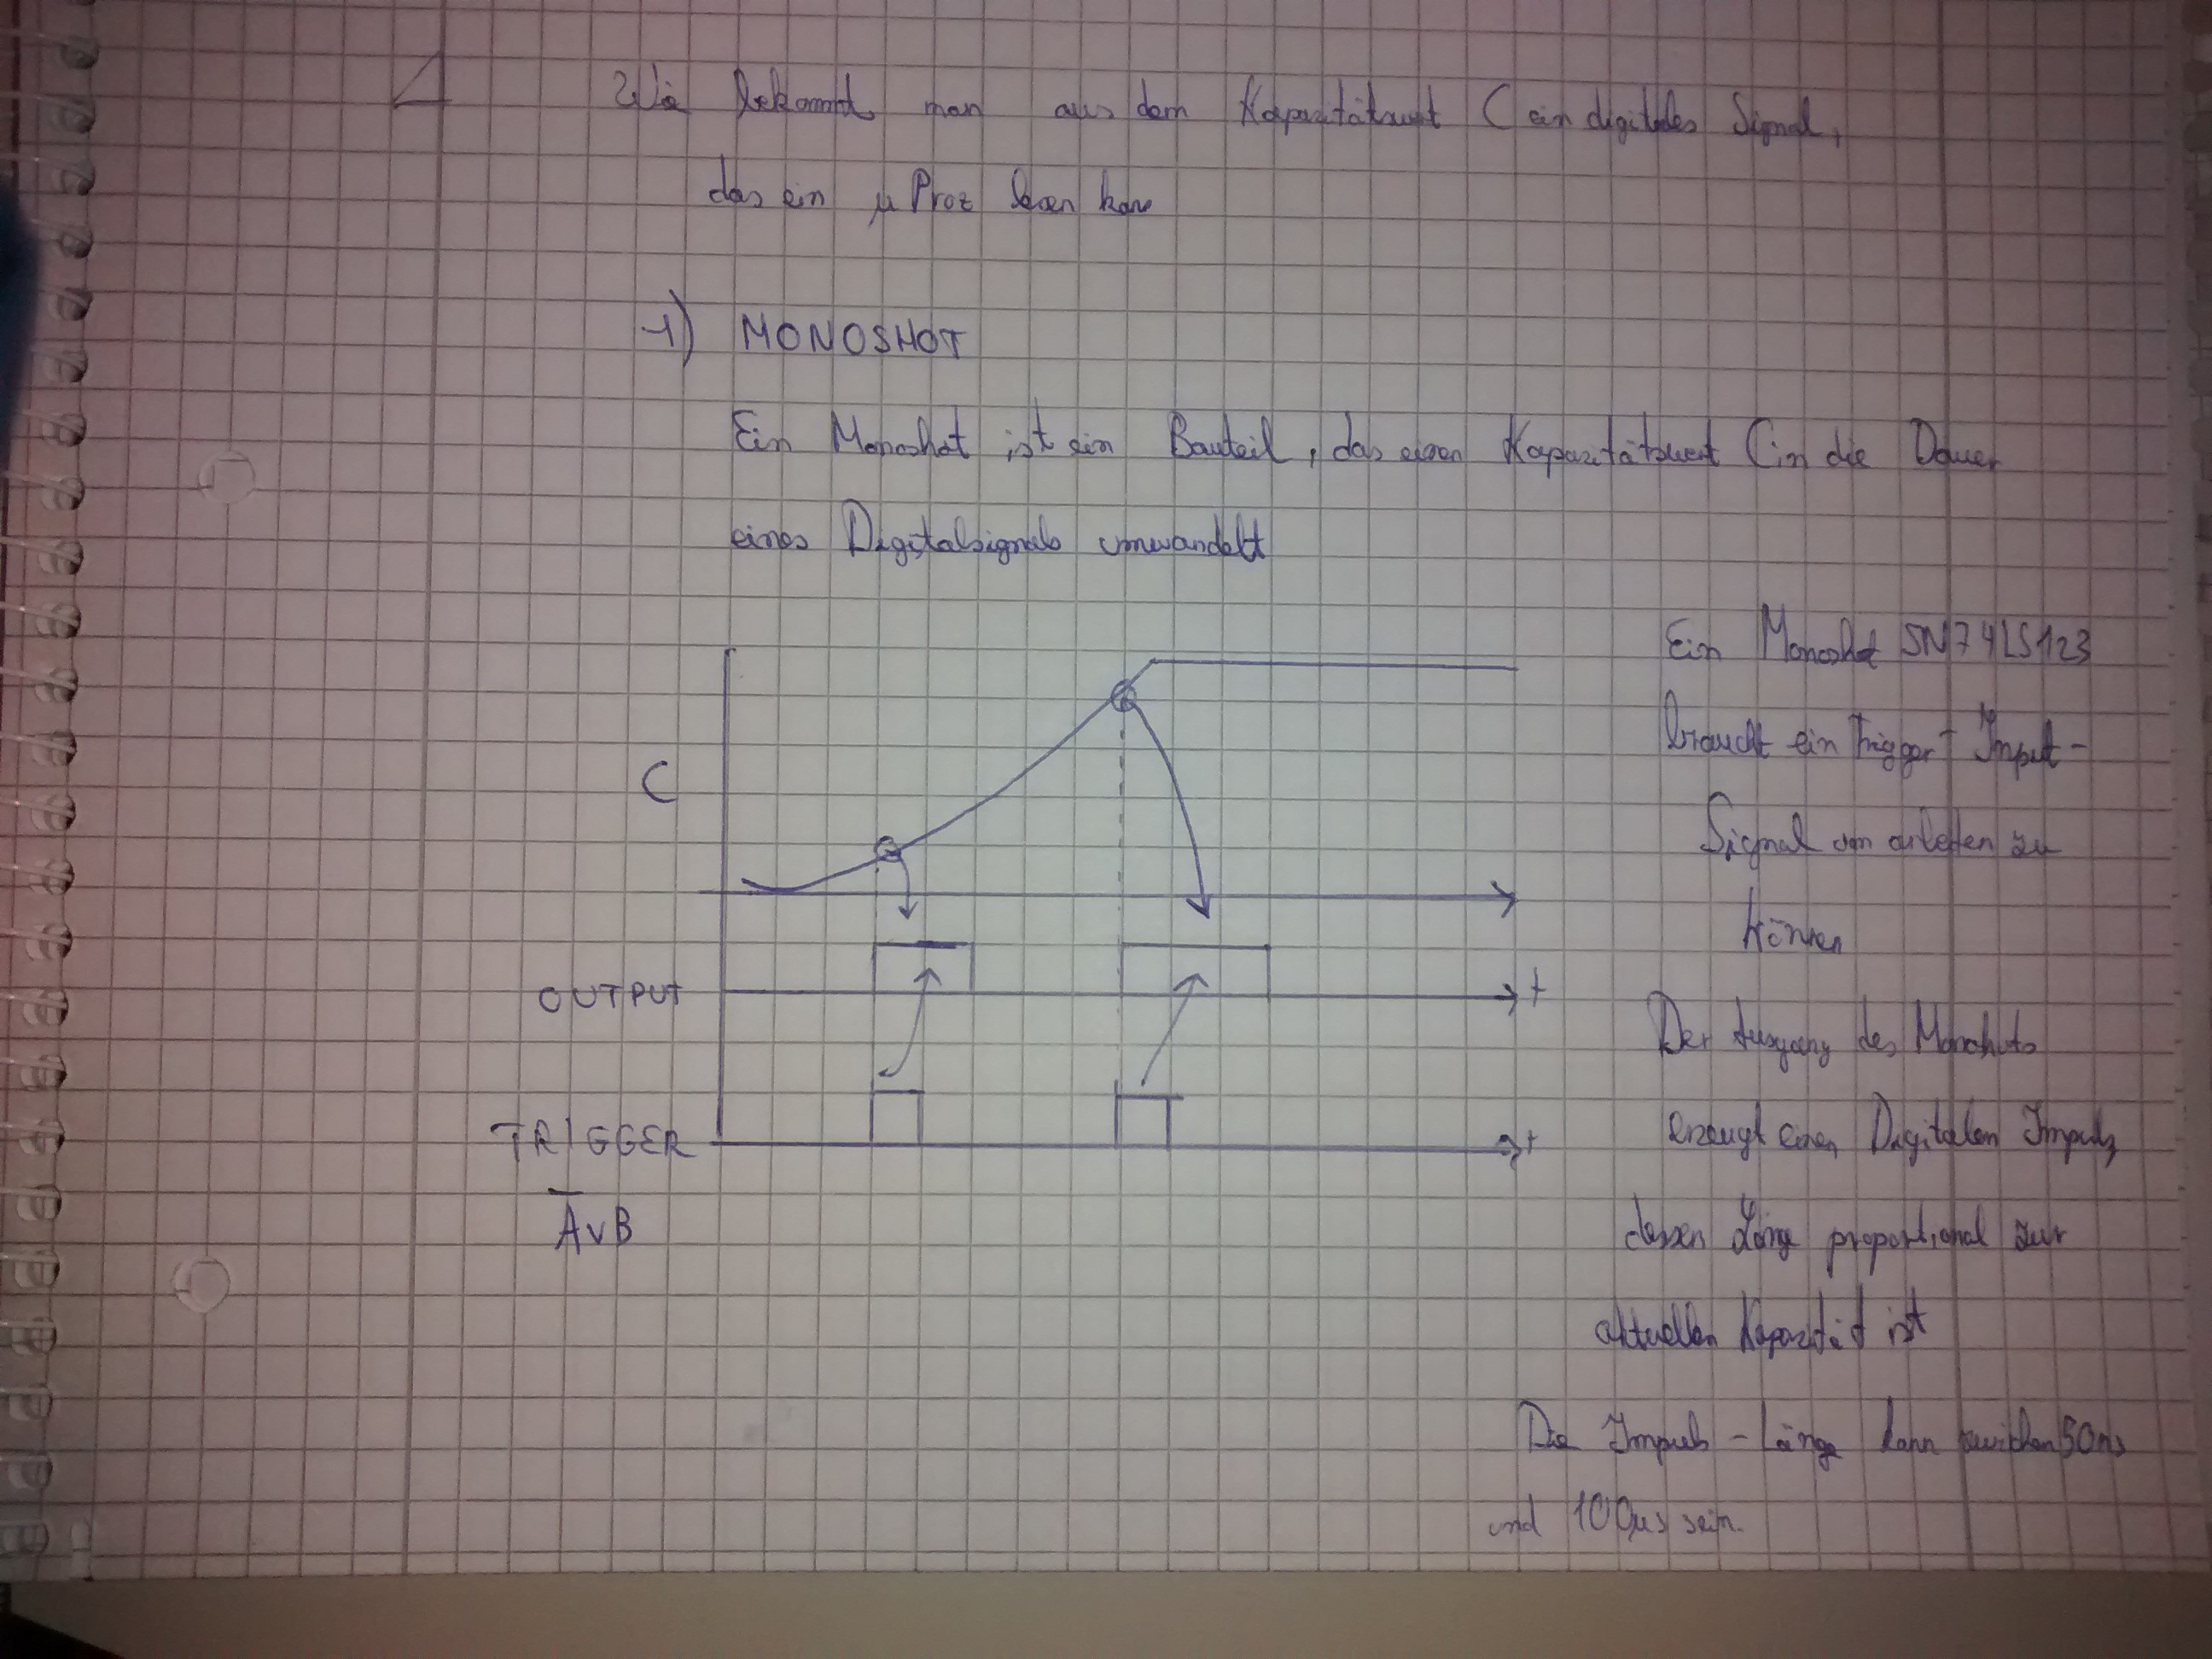 4 Wie bekommt man aus dem Kapazitätswert C ein digitales Signal,
das ein µProz lesen kann
1) MONOSHOT
Ein Monoshot ist ein Bauteil, das einen Kapazitätswert C in die Dauer
eines Digitalsignals umwandelt
Ein Monoshot SN74LS123
braucht ein Trigger-Input-
Signal um arbeiten zu
können
C
OUTPUT t
Der Ausgang des Monoshots
erzeugt einen Digitalen Impuls,
TRIGGER t
A̅vB
dessen Länge proportional zur
aktuellen Kapazität ist
Die Impuls-Länge kann zwischen 50ns
und 100µs sein.